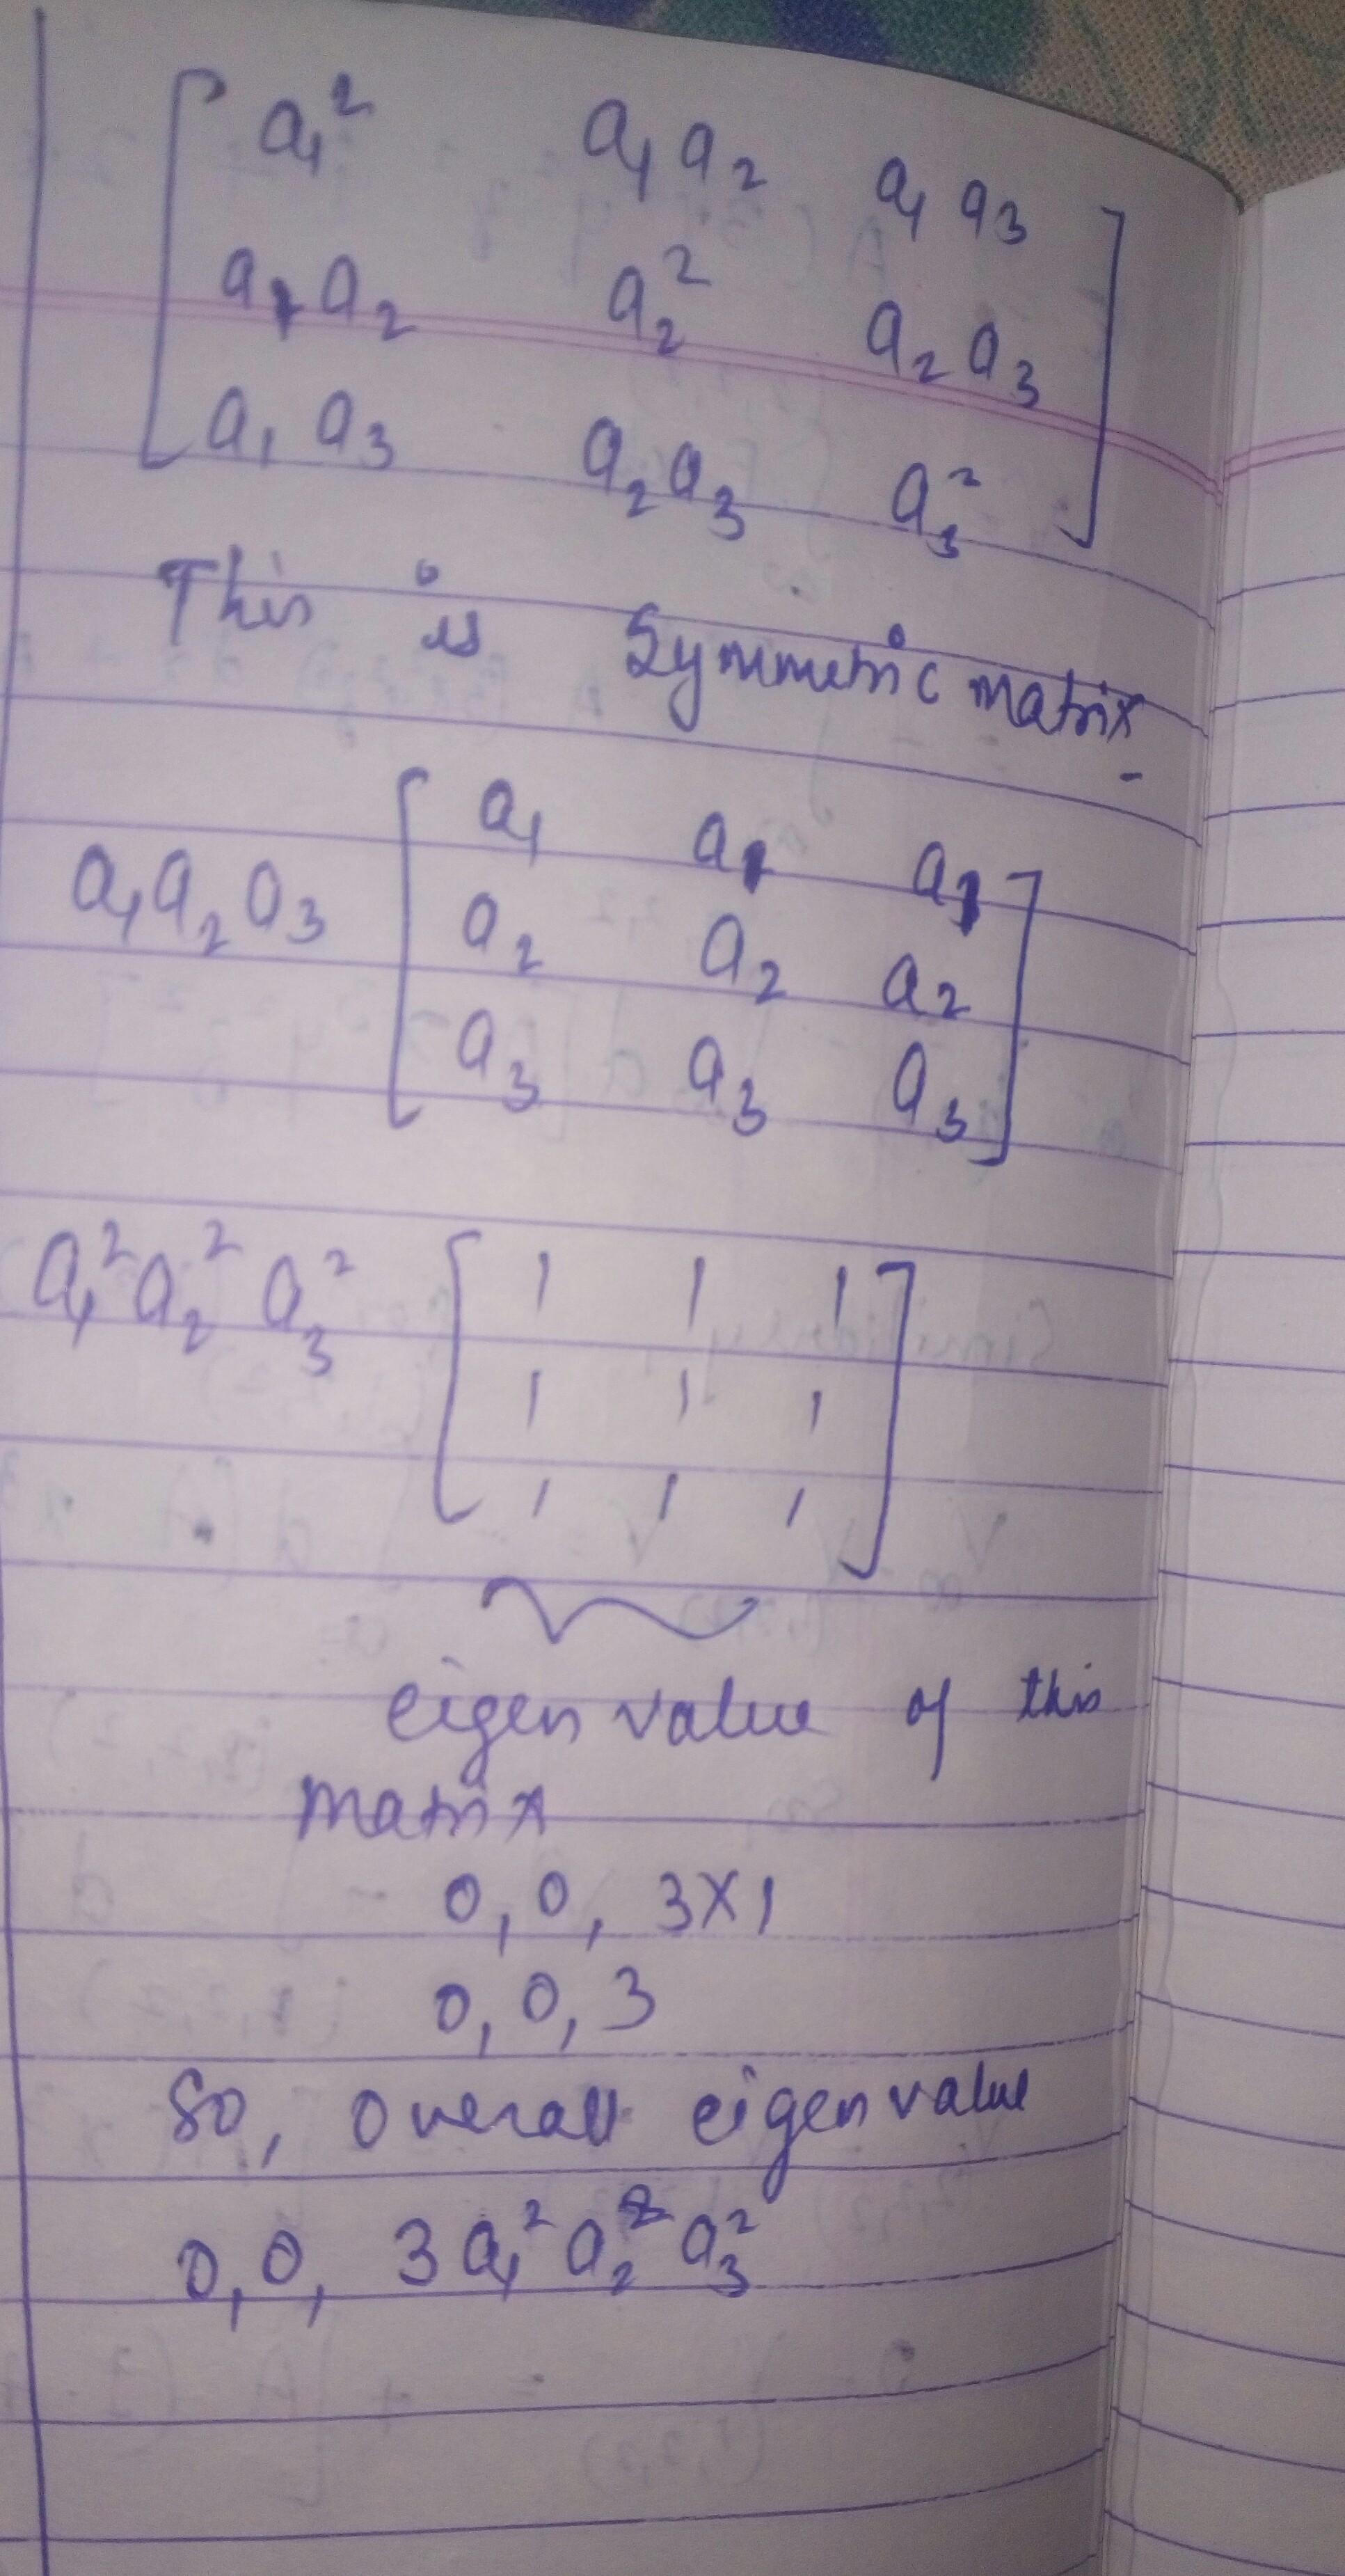 a₁² a₁a₂ a₁a₃
a₁a₂ a₂² a₂a₃
a₁a₃ a₂a₃ a₃²
This is Symmetric matrix
a₁ a₁ a₁
a₁a₂a₃ a₂ a₂ a₂
a₃ a₃ a₃
a₁²a₂²a₃² 1 1 1
1 1 1
1 1 1
eigen value of this
matrix
0, 0, 3×1
0, 0, 3
So, overall eigen value
0, 0, 3a₁²a₂²a₃²